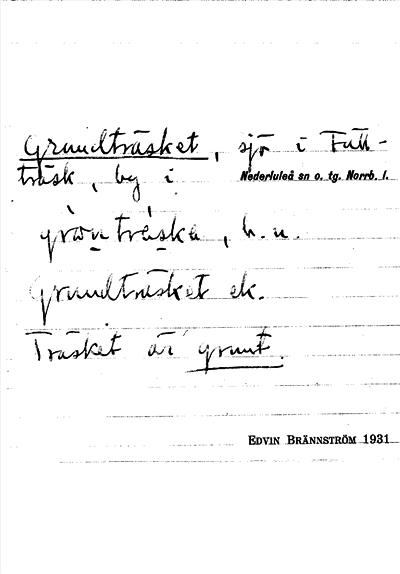 Grundträsket, sjö i Fäll-
träsk, by i Nederluleå sn o. tg. Norrb. l.
gròn trä́ska, b. n.
Grundträsket ek.
Träsket är grunt.
EDVIN BRÄNNSTRÖM 1931